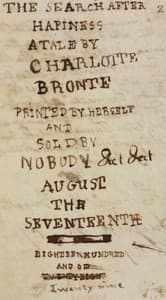 THE SEARCH AFTER 2
HAPINESS
A TALE BY
CHARLOTTE
BRONTE
PRINTED BY HERSELF
AND
SOLD BY
NOBODY &ct &ct
AUGUST
THE
SEVENTEENTH
EIGHTEEN HUNDRED
AND OD
TWENTY EIGHT
Twenty nine